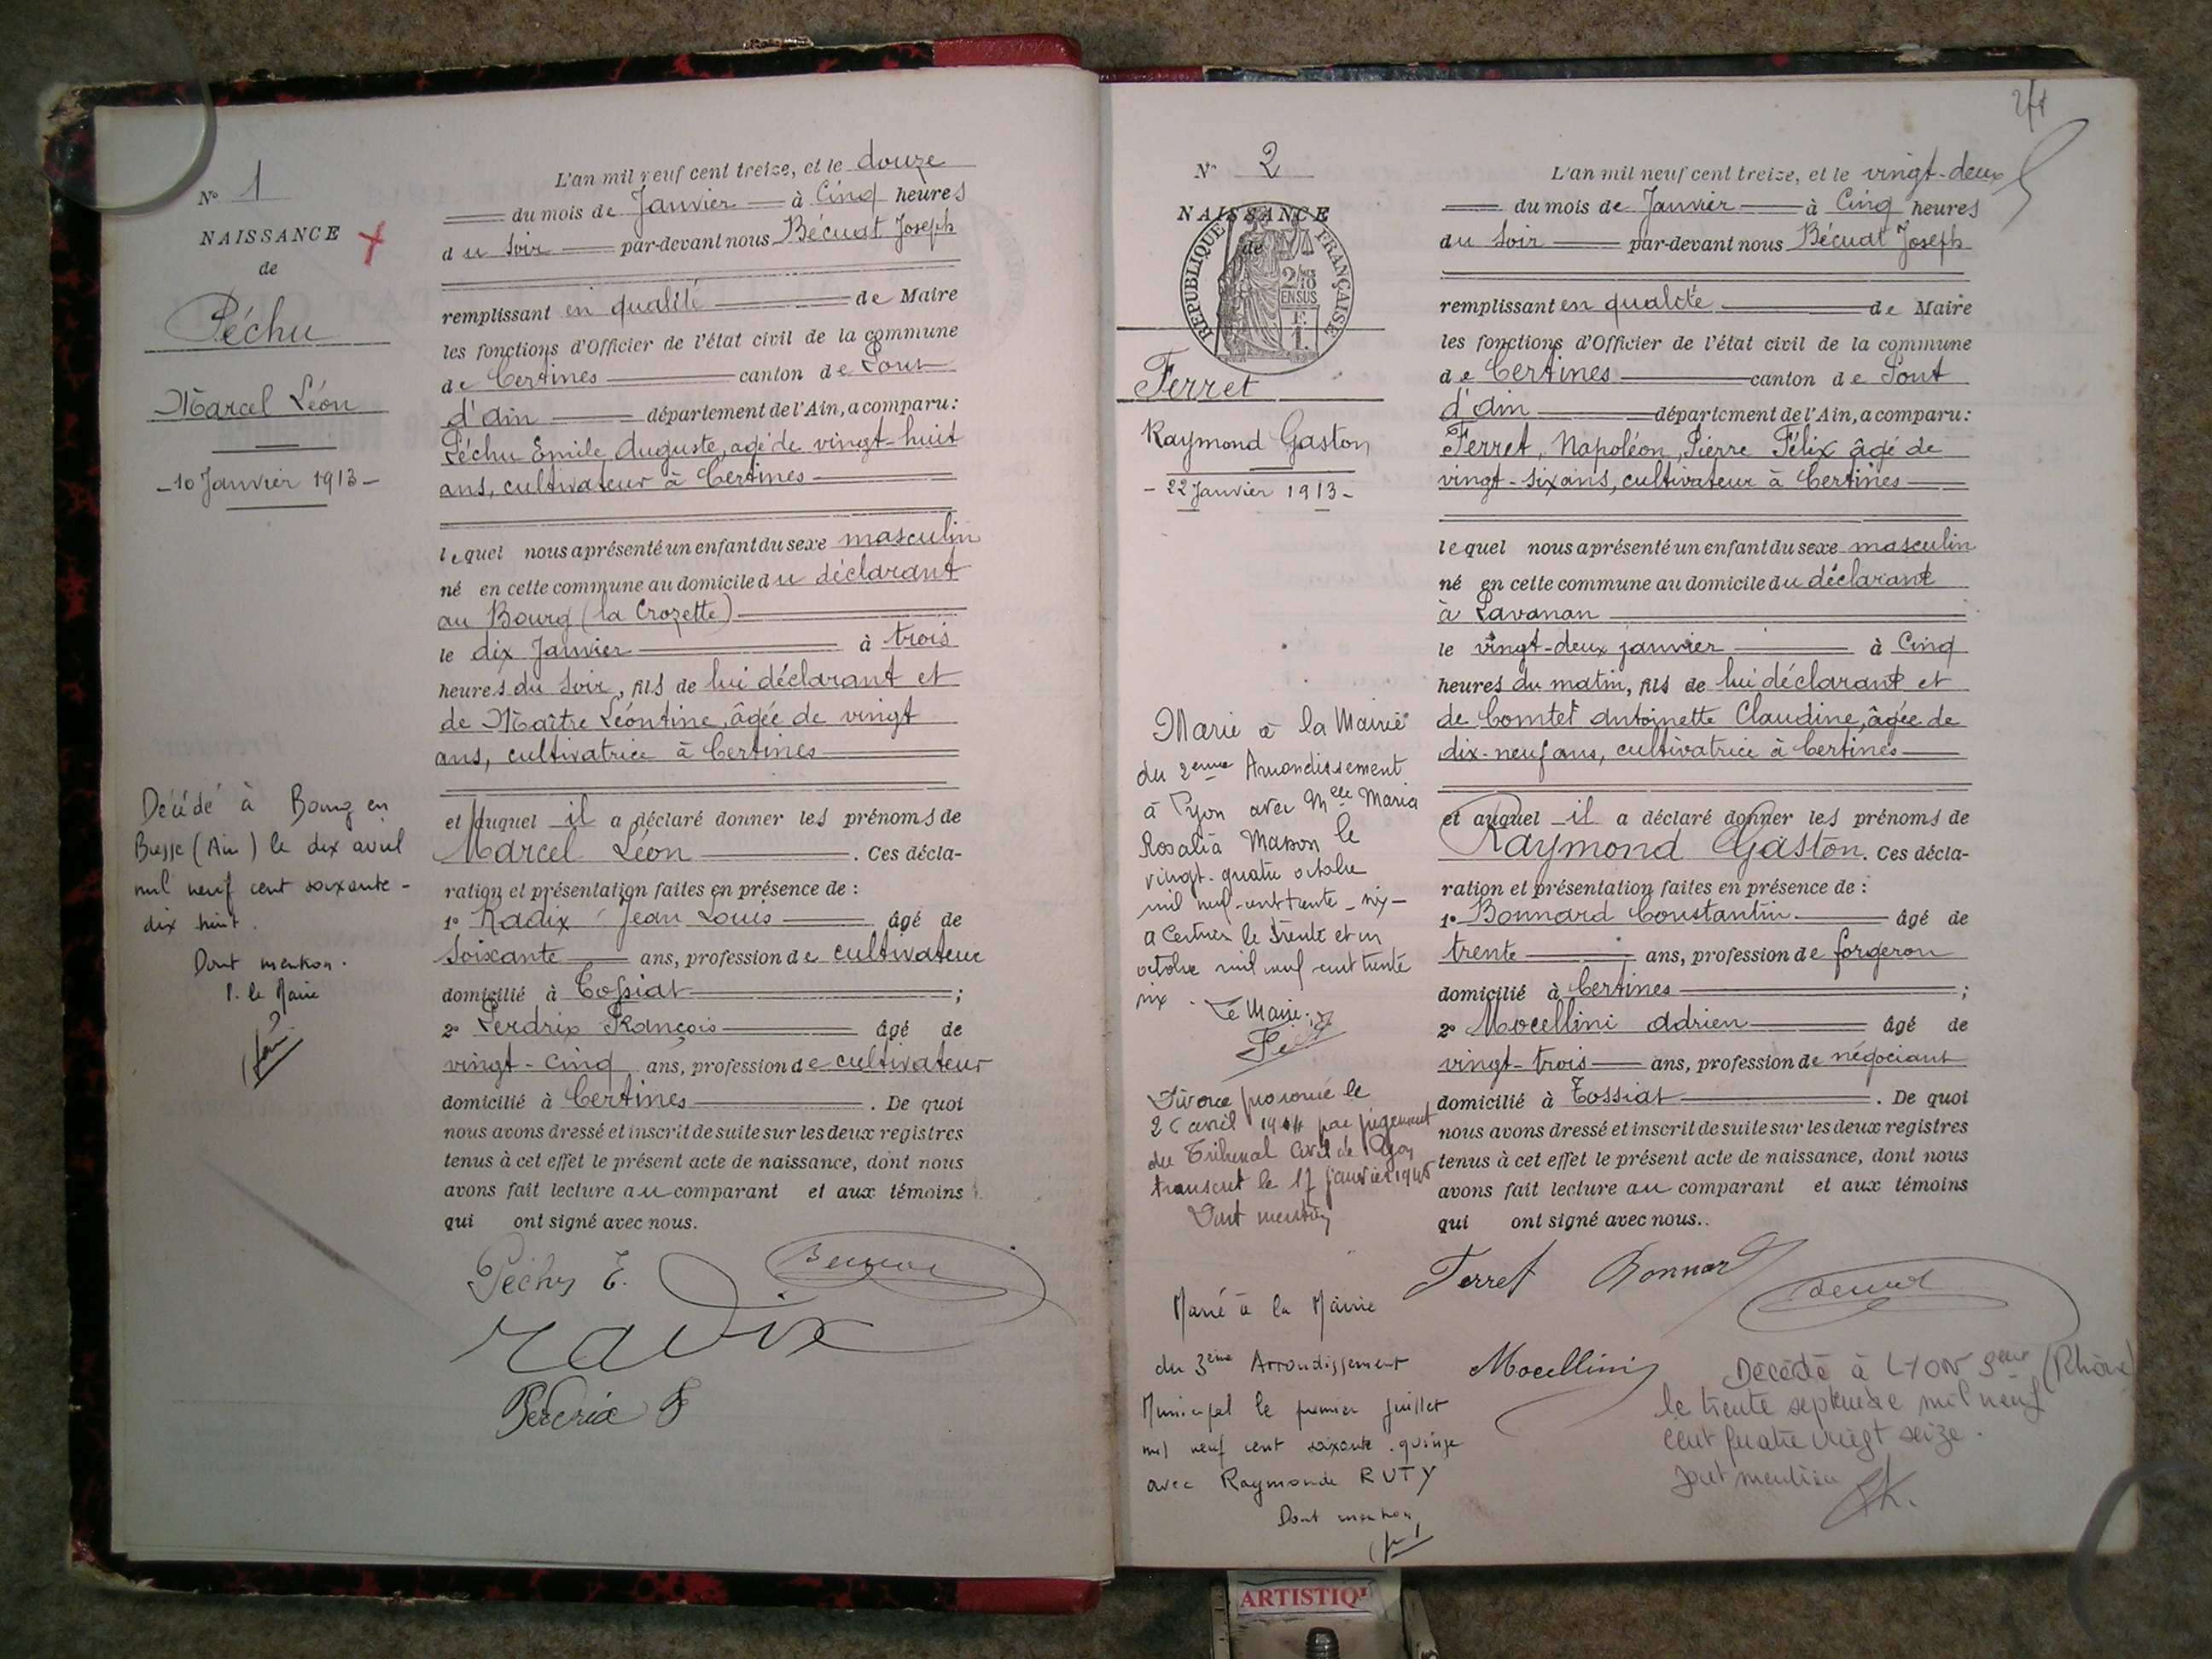 N° 1
NAISSANCE
de
Péchu
Marcel Léon
- 10 Janvier 1913 -
Décédé à Bourg en
Bresse (Ain) le dix avril
mil neuf cent soixante-
dix huit.
Dont mention.
P. le Maire
L'an mil neuf cent treize, et le douze
du mois de Janvier à Cinq heures
du soir par-devant nous Bécuat Joseph
remplissant en qualité de Maire
les fonctions d'Officier de l'état civil de la commune
de Certines canton de Pont
d'ain département de l'Ain, a comparu:
Péchu Emile Auguste, agé de vingt-huit
ans, cultivateur à Certines
lequel nous a présenté un enfant du sexe masculin
né en cette commune au domicile du déclarant
au Bourg (la Crozette)
le dix Janvier à trois
heures du soir, fils de lui déclarant et
de Maître Léontine, âgée de vingt
ans, cultivatrice à Certines
et auquel il a déclaré donner les prénoms de
Marcel Léon. Ces décla-
ration et présentation faites en présence de :
1° Radix Jean Louis âgé de
soixante ans, profession de cultivateur
domicilié à Tossiat ;
2° Perdrix François âgé de
vingt-cinq ans, profession de cultivateur
domicilié à Certines. De quoi
nous avons dressé et inscrit de suite sur les deux registres
tenus à cet effet le présent acte de naissance, dont nous
avons fait lecture au comparant et aux témoins
qui ont signé avec nous.
Péchu E. Bécuat
radix
Perdrix F
N° 2
NAISSANCE
de
RÉPUBLIQUE FRANÇAISE
2/10
EN SUS
F.
1.
Ferret
Raymond Gaston
- 22 Janvier 1913 -
Marié à la Mairie
du 2eme Arrondissement
à Lyon avec Melle Maria
Rosalia Masson le
vingt-quatre octobre
mil neuf cent trente-six-
a Certines le trente et un
octobre mil neuf cent trente
six. Le Maire.
Divorce prononcé le
avril 1944 par jugement
du Tribunal Civil de Lyon
transcrit le 17 janvier 1945
Dont mention
Marié à la Mairie
du 3ème Arrondissement
Municipal le premier juillet
mil neuf cent soixante-quinze
avec Raymonde RUTY
Dont mention
L'an mil neuf cent treize, et le vingt-deux
du mois de Janvier à Cinq heures
du soir par-devant nous Bécuat Joseph
remplissant en qualité de Maire
les fonctions d'Officier de l'état civil de la commune
de Certines canton de Pont
d'ain département de l'Ain, a comparu:
Ferret, Napoléon, Pierre Félix âgé de
vingt-six ans, cultivateur à Certines
lequel nous a présenté un enfant du sexe masculin
né en cette commune au domicile du déclarant
à Lavanan
le vingt-deux janvier à Cinq
heures du matin, fils de lui déclarant et
de Comtet Antoinette Claudine, âgée de
dix-neuf ans, cultivatrice à Certines
et auquel il a déclaré donner les prénoms de
Raymond Gaston. Ces décla-
ration et présentation faites en présence de :
1° Bonnard Constantin âgé de
trente ans, profession de forgeron
domicilié à Certines ;
2° Mocellini Adrien âgé de
vingt-trois ans, profession de négociant
domicilié à Tossiat. De quoi
nous avons dressé et inscrit de suite sur les deux registres
tenus à cet effet le présent acte de naissance, dont nous
avons fait lecture au comparant et aux témoins
qui ont signé avec nous..
Ferret Bonnard Bécuat
Mocellini
Décédé à LYON 3eme (Rhône)
le trente septembre mil neuf
cent quatre vingt seize.
dont mention
ARTISTIQ